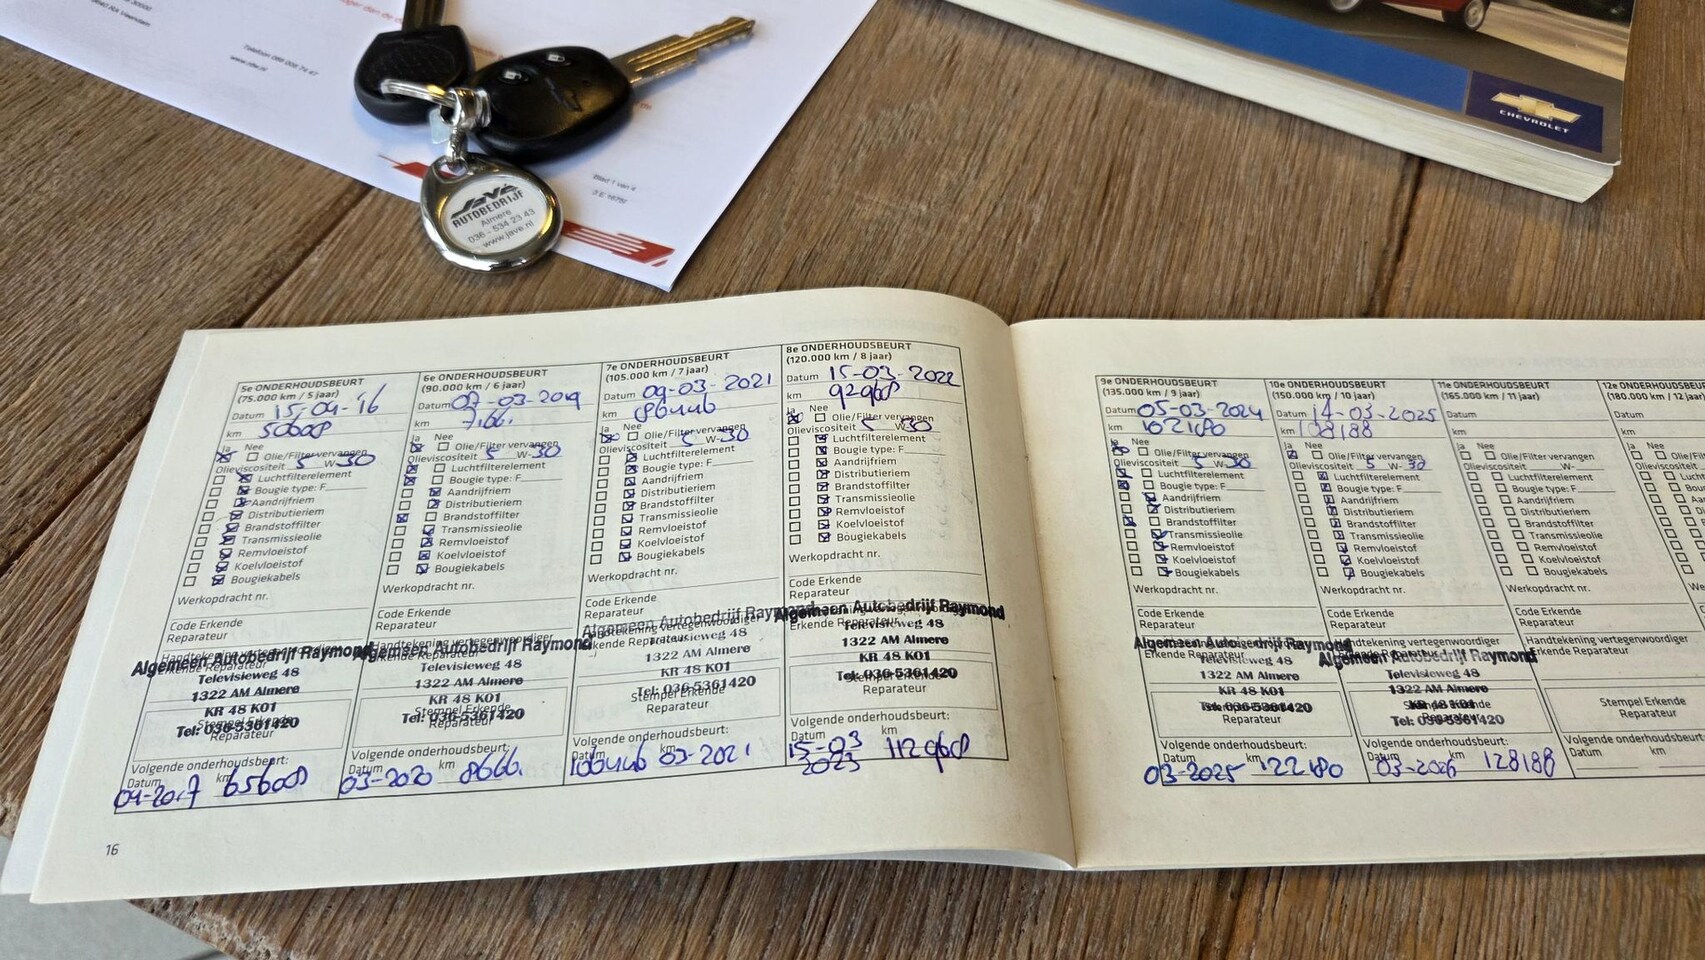 9640 RA Veendam
Telefoon 088 008 74 47
www.rdw.nl
Blad 1 van 4
JaVé
AUTOBEDRIJF
Almere
036 - 534 23 43
www.jave.nl
CHEVROLET
5e ONDERHOUDSBEURT
(75.000 km / 5 jaar)
Datum 15-04-'16
km 50608
Ja Nee
Olie/Filter vervangen
Olieviscositeit 5 W-30
Luchtfilterelement
Bougie type: F
Aandrijfriem
Distributieriem
Brandstoffilter
Transmissieolie
Remvloeistof
Koelvloeistof
Bougiekabels
Werkopdracht nr.
Code Erkende
Reparateur
Handtekening vertegenwoordiger
Erkende Reparateur
Algemeen Autobedrijf Raymond
Televisieweg 48
1322 AM Almere
KR 48 K01
Tel: 036-5361420
Stempel Erkende
Reparateur
Volgende onderhoudsbeurt:
Datum km
04-2017 65608
6e ONDERHOUDSBEURT
(90.000 km / 6 jaar)
Datum 07-03-2019
km
Ja Nee
Olie/Filter vervangen
Olieviscositeit 5 W-30
Luchtfilterelement
Bougie type: F
Aandrijfriem
Distributieriem
Brandstoffilter
Transmissieolie
Remvloeistof
Koelvloeistof
Bougiekabels
Werkopdracht nr.
Code Erkende
Reparateur
Handtekening vertegenwoordiger
Erkende Reparateur
Algemeen Autobedrijf Raymond
Televisieweg 48
1322 AM Almere
KR 48 K01
Tel: 036-5361420
Stempel Erkende
Reparateur
Volgende onderhoudsbeurt:
Datum km
03-2020
7e ONDERHOUDSBEURT
(105.000 km / 7 jaar)
Datum 09-03-2021
km 86446
Ja Nee
Olie/Filter vervangen
Olieviscositeit 5 W-30
Luchtfilterelement
Bougie type: F
Aandrijfriem
Distributieriem
Brandstoffilter
Transmissieolie
Remvloeistof
Koelvloeistof
Bougiekabels
Werkopdracht nr.
Code Erkende
Reparateur
Handtekening vertegenwoordiger
Erkende Reparateur
Algemeen Autobedrijf Raymond
Televisieweg 48
1322 AM Almere
KR 48 K01
Tel: 036-5361420
Stempel Erkende
Reparateur
Volgende onderhoudsbeurt:
Datum km
106446 03-2021
8e ONDERHOUDSBEURT
(120.000 km / 8 jaar)
Datum 15-03-2022
km 92968
Ja Nee
Olie/Filter vervangen
Olieviscositeit 5 W-30
Luchtfilterelement
Bougie type: F
Aandrijfriem
Distributieriem
Brandstoffilter
Transmissieolie
Remvloeistof
Koelvloeistof
Bougiekabels
Werkopdracht nr.
Code Erkende
Reparateur
Algemeen Autobedrijf Raymond
Televisieweg 48
1322 AM Almere
KR 48 K01
Tel: 036-5361420
Stempel Erkende
Reparateur
Volgende onderhoudsbeurt:
Datum km
15-03 112968
2023
16
9e ONDERHOUDSBEURT
(135.000 km / 9 jaar)
Datum 05-03-2024
km 102180
Ja Nee
Olie/Filter vervangen
Olieviscositeit 5 W-30
Luchtfilterelement
Bougie type: F
Aandrijfriem
Distributieriem
Brandstoffilter
Transmissieolie
Remvloeistof
Koelvloeistof
Bougiekabels
Werkopdracht nr.
Code Erkende
Reparateur
Handtekening vertegenwoordiger
Erkende Reparateur
Algemeen Autobedrijf Raymond
Televisieweg 48
1322 AM Almere
KR 48 K01
Tel: 036-5361420
Stempel Erkende
Reparateur
Volgende onderhoudsbeurt:
Datum km
03-2025 122180
10e ONDERHOUDSBEURT
(150.000 km / 10 jaar)
Datum 14-03-2025
km 108188
Ja Nee
Olie/Filter vervangen
Olieviscositeit 5 W-30
Luchtfilterelement
Bougie type: F
Aandrijfriem
Distributieriem
Brandstoffilter
Transmissieolie
Remvloeistof
Koelvloeistof
Bougiekabels
Werkopdracht nr.
Code Erkende
Reparateur
Handtekening vertegenwoordiger
Erkende Reparateur
Algemeen Autobedrijf Raymond
Televisieweg 48
1322 AM Almere
KR 48 K01
Tel: 036-5361420
Stempel Erkende
Reparateur
Volgende onderhoudsbeurt:
Datum km
03-2026 128188
11e ONDERHOUDSBEURT
(165.000 km / 11 jaar)
Datum
km
Ja Nee
Olie/Filter vervangen
Olieviscositeit W-
Luchtfilterelement
Bougie type: F
Aandrijfriem
Distributieriem
Brandstoffilter
Transmissieolie
Remvloeistof
Koelvloeistof
Bougiekabels
Werkopdracht nr.
Code Erkende
Reparateur
Handtekening vertegenwoordiger
Erkende Reparateur
Stempel Erkende
Reparateur
Volgende onderhoudsbeurt:
Datum km
12e ONDERHOUDSBEURT
(180.000 km / 12 jaar)
Datum
km
Ja Nee